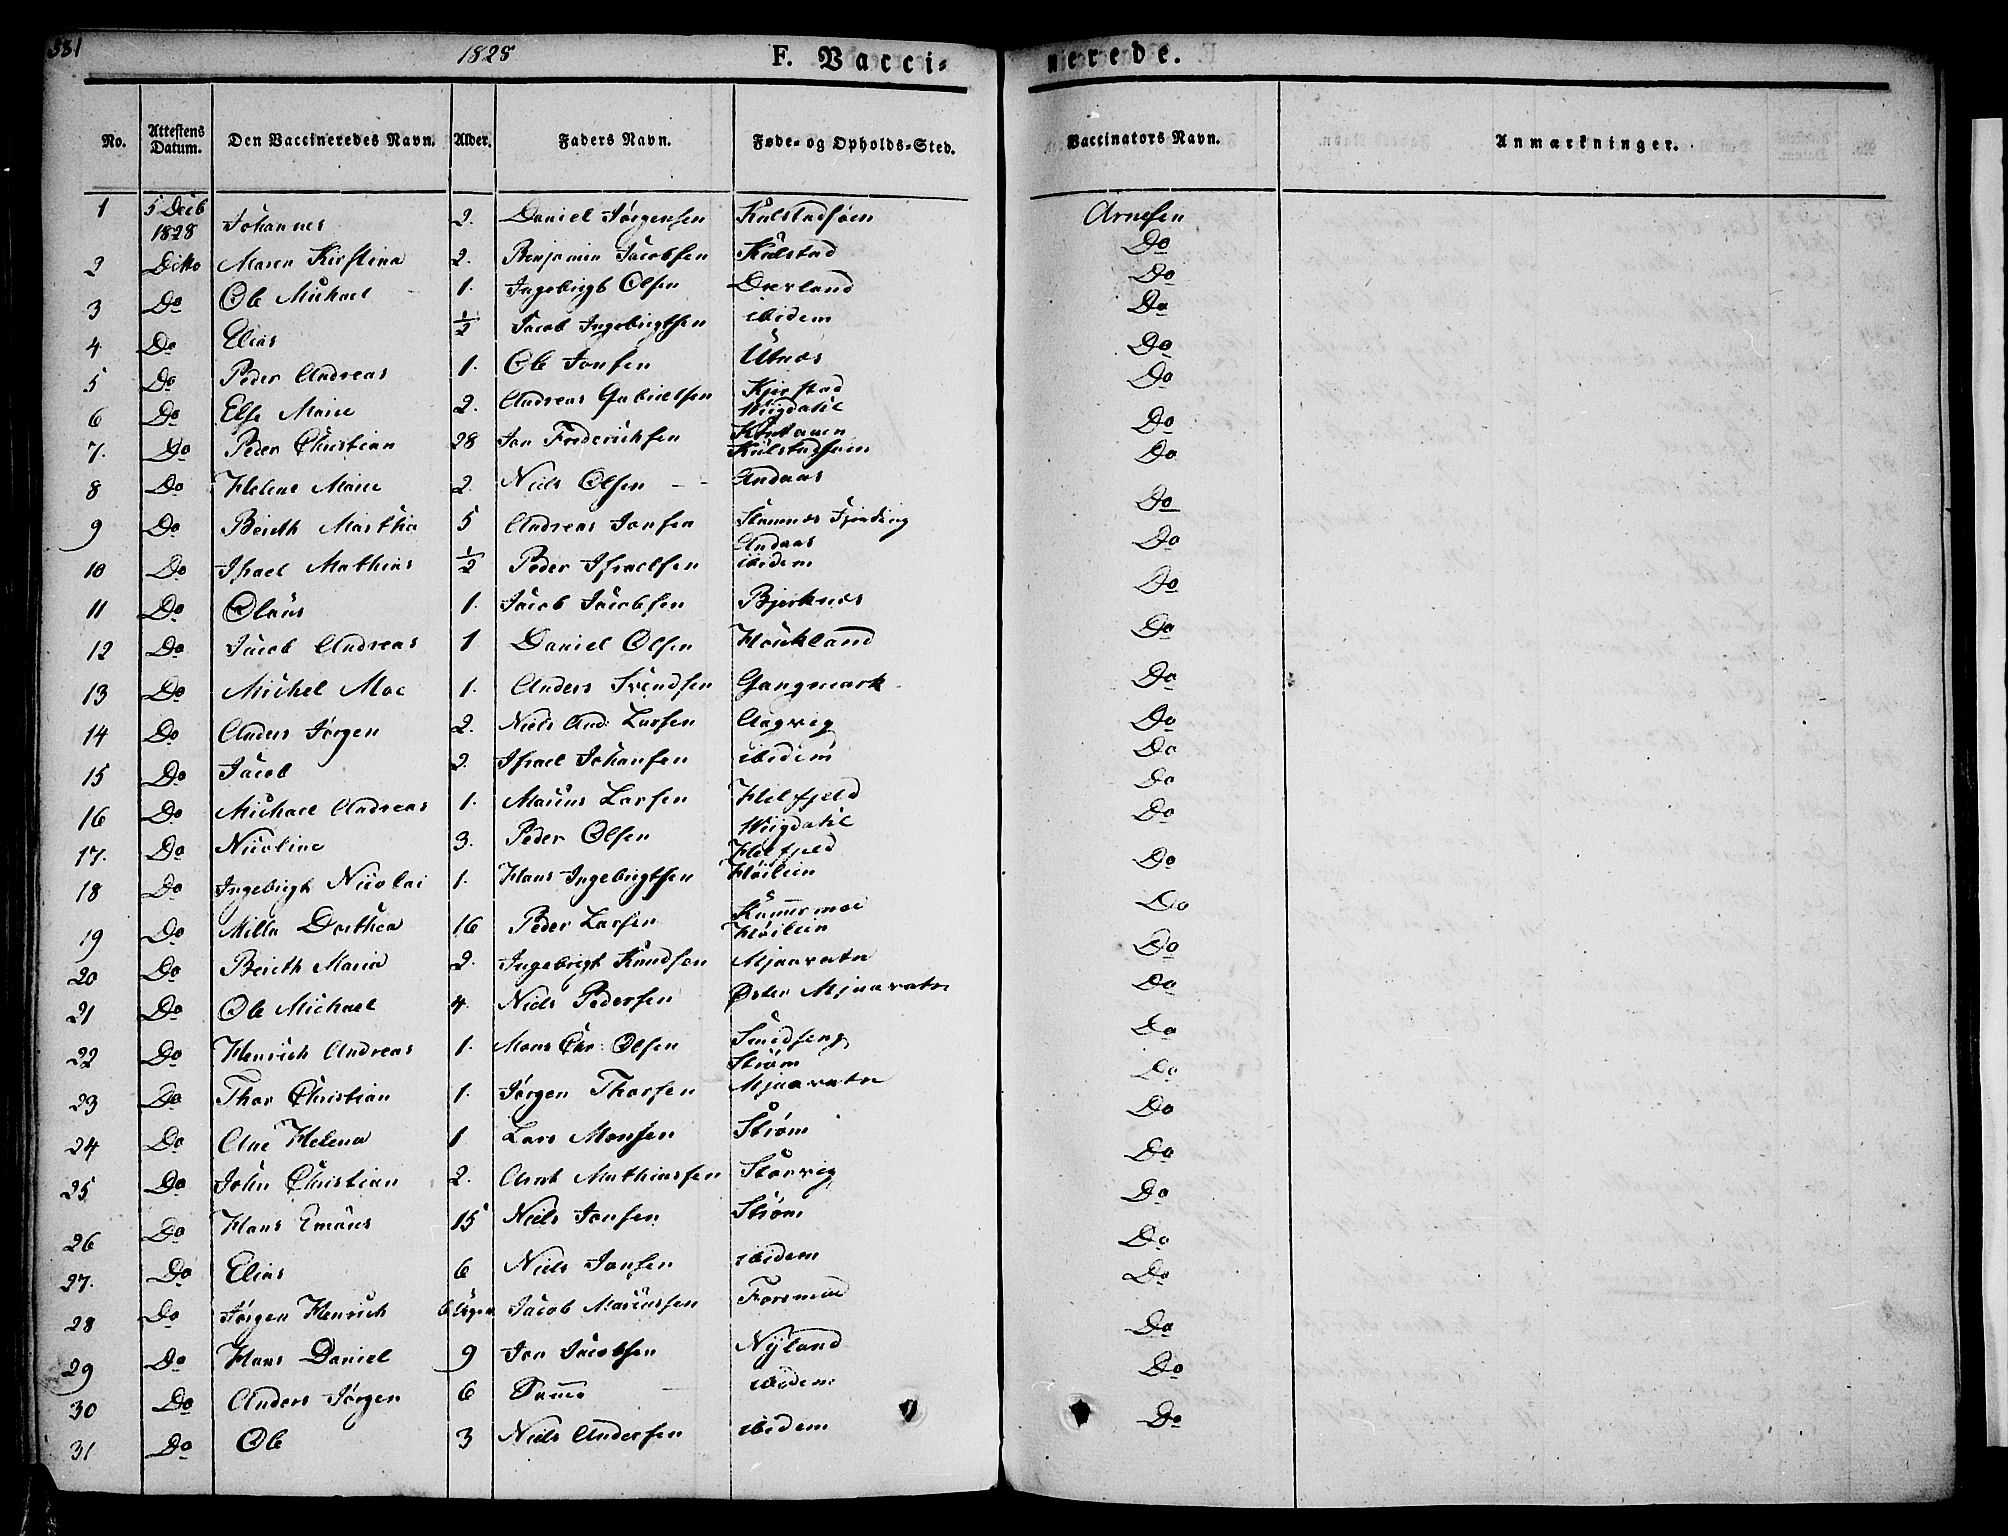 331
1828 F. Vacci- nerede.
No. Attestens Datum. Den Vaccineredes Navn. Alder. Faders Navn. Føde- og Opholds-Sted. Vaccinators Navn. Anmærkninger.
1 5 Decb 1828 Johannes 2. Daniel Jørgensen Kulstadsøen Arnesen
2 Ditto Maren Kirstina 2. Benjamin Jacobsen Kulstad Do
3 Do Ole Michael 1. Ingebrigt Olsen Drevland Do
4 Do Elias 1/2 Jacob Ingebrigtsen ibidem Do
5 Do Peder Andreas 1. Ole Jonsen Utnes Do
6 Do Else Marie 2. Andreas Gabrielsen Kjerstad Do
7. Do Peder Christian 28 Jon Frederichsen Kulstadsøen Do
8 Do Helene Marie 2. Niels Olsen Andaas Do
9 Do Bereth Martha 5 Andreas Jonsen Stamnes Fjerding Andaas Do
10 Do Israel Mathias 1/2 Peder Israelsen ibidem Do
11 Do Olaus 1. Jacob Jacobsen Bjerknes Do
12 Do Jacob Andreas 1 Daniel Olsen Houkland Do
13 Do Michel Moe 1. Anders Svendsen Gangmark Do
14 Do Anders Jørgen 2. Niels And: Larsen Aagvig Do
15 Do Jacob 2. Israel Johansen ibidem Do
16 Do Michael Andreas 1. Maüus Larsen Helfjeld Do
17. Do Nicoline 3. Peder Olsen Helfjeld Do
18 Do Ingebrigt Nicolai 1. Hans Ingebrigtsen Høilien Do
19 Do Milla Dorthea 16 Peder Larsen Kummermoe Høilien Do
20 Do Bereth Maria 2. Ingebrigt Knudsen Mjaavatn Do
21 Do Ole Michael 4. Niels Pedersen Øster Mjaavatn Do
22 Do Henrich Andreas 1. Mons Chr: Olsen Smedseng Strøm Do
23 Do Thor Christian 1. Jørgen Thorsen Mjaavatn Do
24 Do Ane Helena 1 Lars Monsen Strøm Do
25 Do John Christian 2. Arnt Mathiassen Storvig Do
26 Do Hans Emäus 15 Niels Jonsen Strøm Do
27. Do Elias 6 Niels Jonsen ibidem Do
28 Do Jørgen Henrich 6 Uger Jacob Mariussen Forsmoe Do
29 Do Hans Daniel 9 Jon Jacobsen Nyland Do
30 Do Anders Jørgen 6 Samme ibidem Do
31 Do Ole 3 Niels Andersen ibidem Do